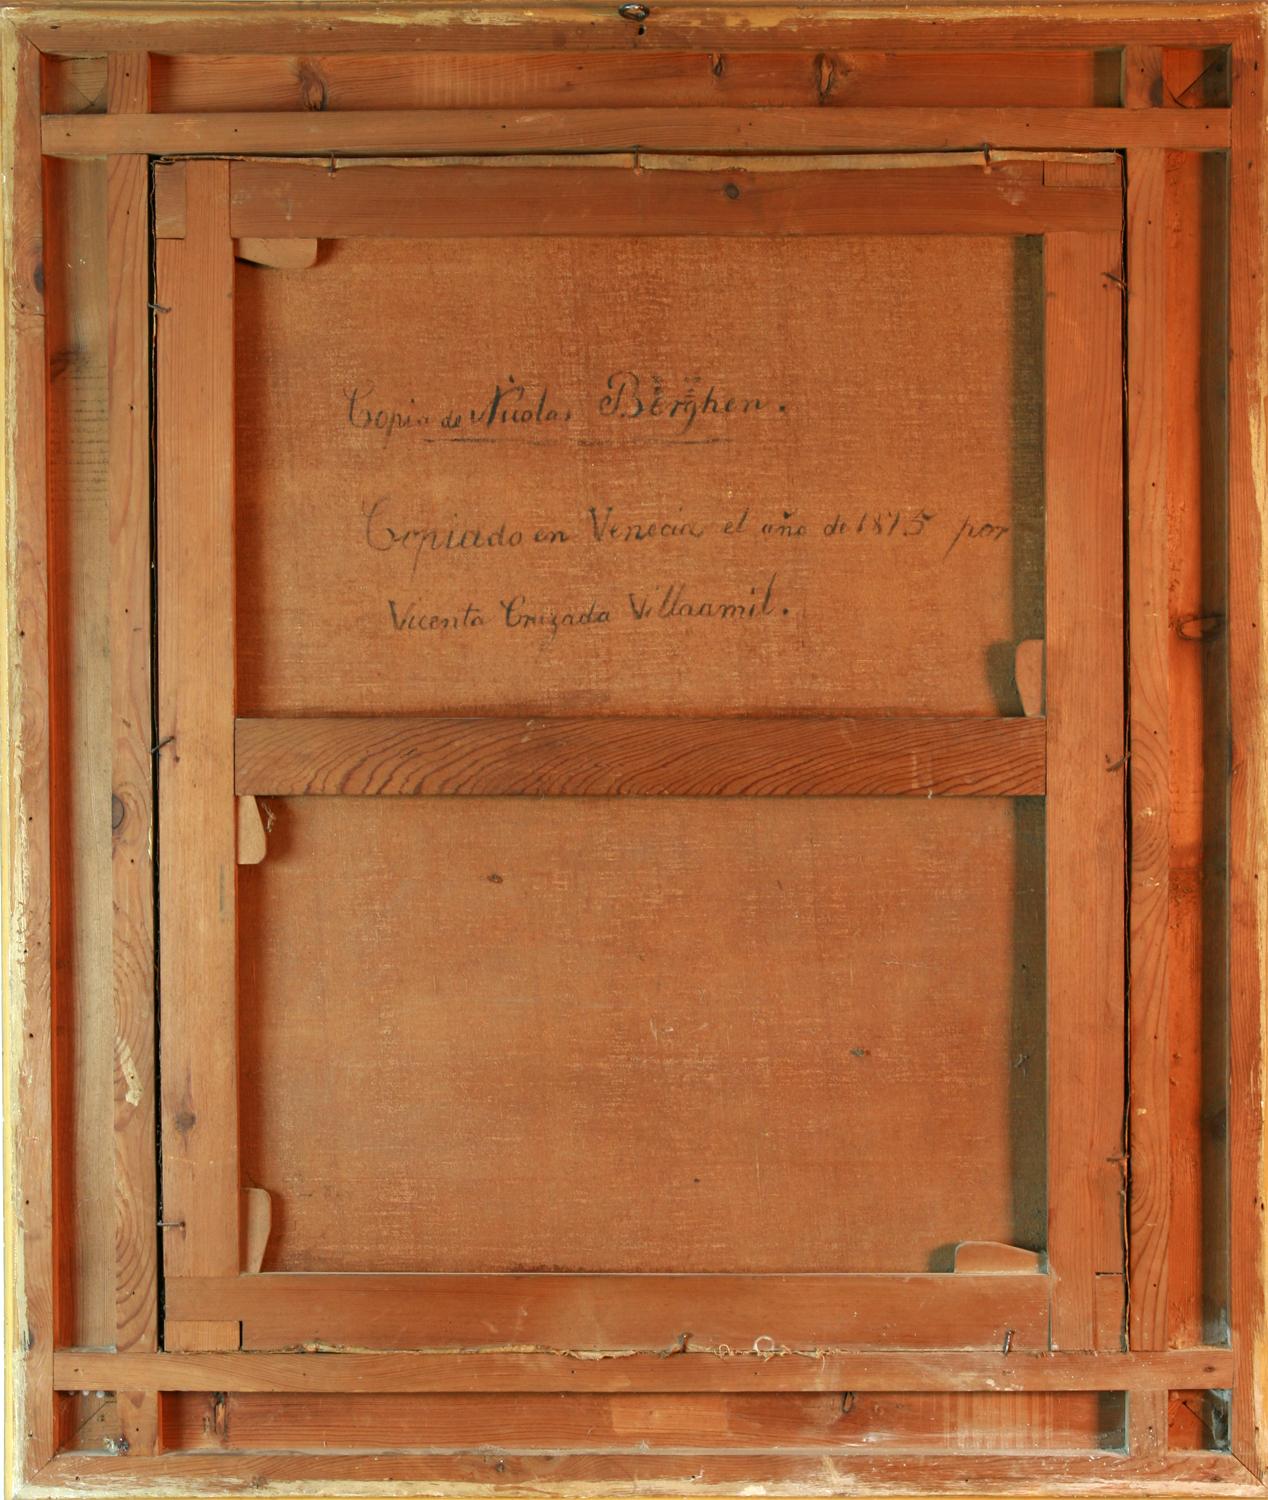 Copia de Nicolas Berghen.
Copiado en Venecia el año de 1875 por
Vicenta Cruzada Villaamil.